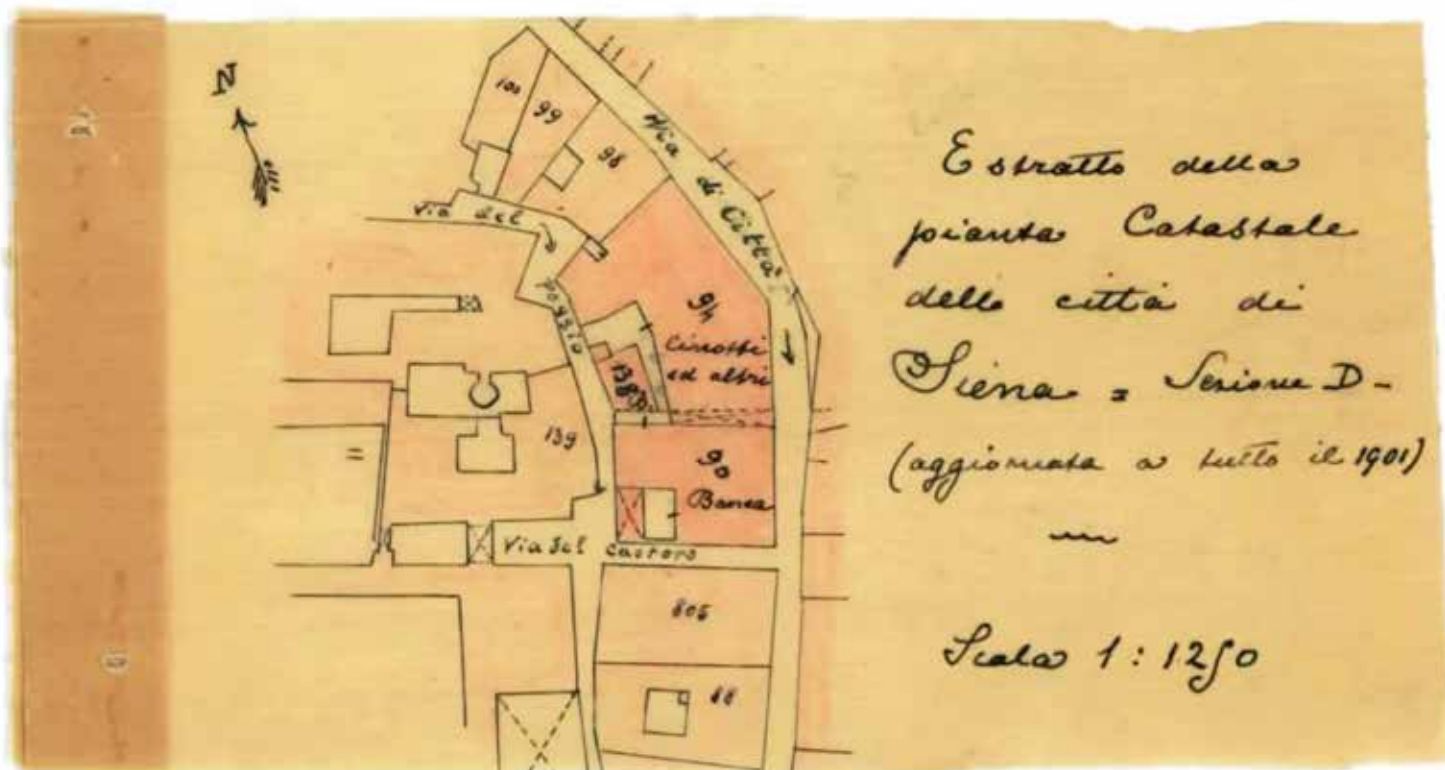 N
100
99
98
Via di Città
Via del
poggio
94
Cinotti
ed altri
138
139
90
Banca
Via del Castoro
805
88
Estratto della
pianta Catastale
della città di
Siena = Sezione D-
(aggiornata a tutto il 1901)
Scala 1:1250